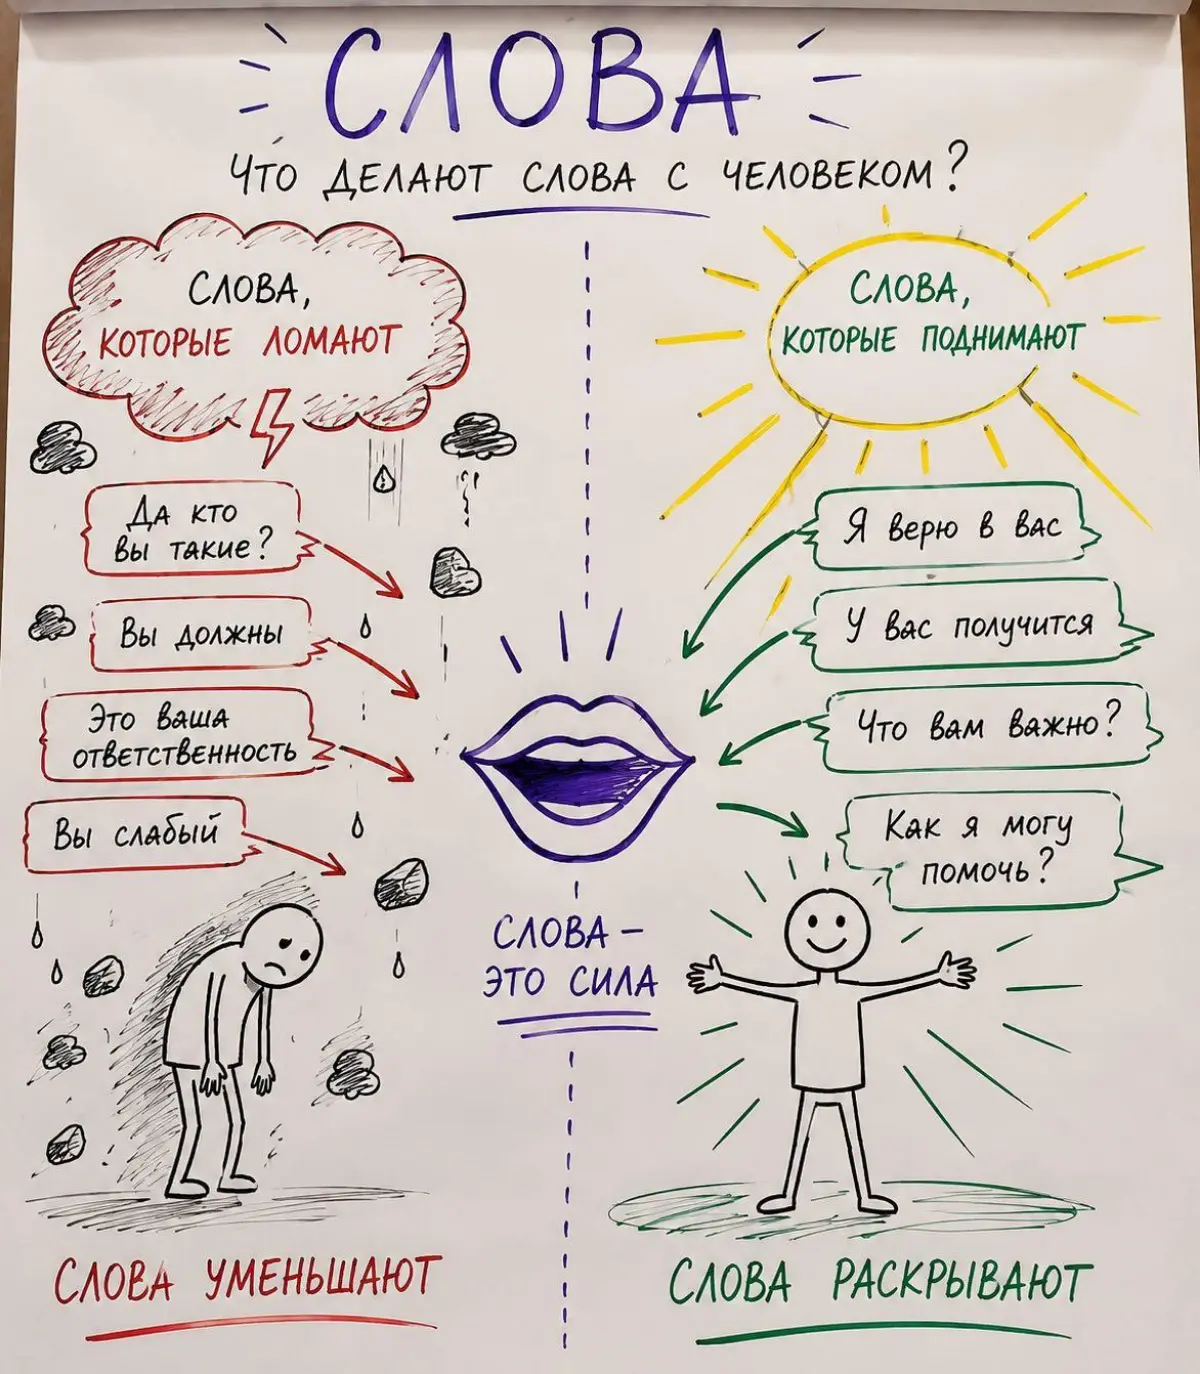 СЛОВА
ЧТО ДЕЛАЮТ СЛОВА С ЧЕЛОВЕКОМ?
СЛОВА,
КОТОРЫЕ ЛОМАЮТ
Да кто
вы такие?
Вы должны
Это ваша
ответственность
Вы слабый
СЛОВА,
КОТОРЫЕ ПОДНИМАЮТ
Я верю в вас
У вас получится
Что вам важно?
Как я могу
помочь?
СЛОВА –
ЭТО СИЛА
СЛОВА УМЕНЬШАЮТ
СЛОВА РАСКРЫВАЮТ